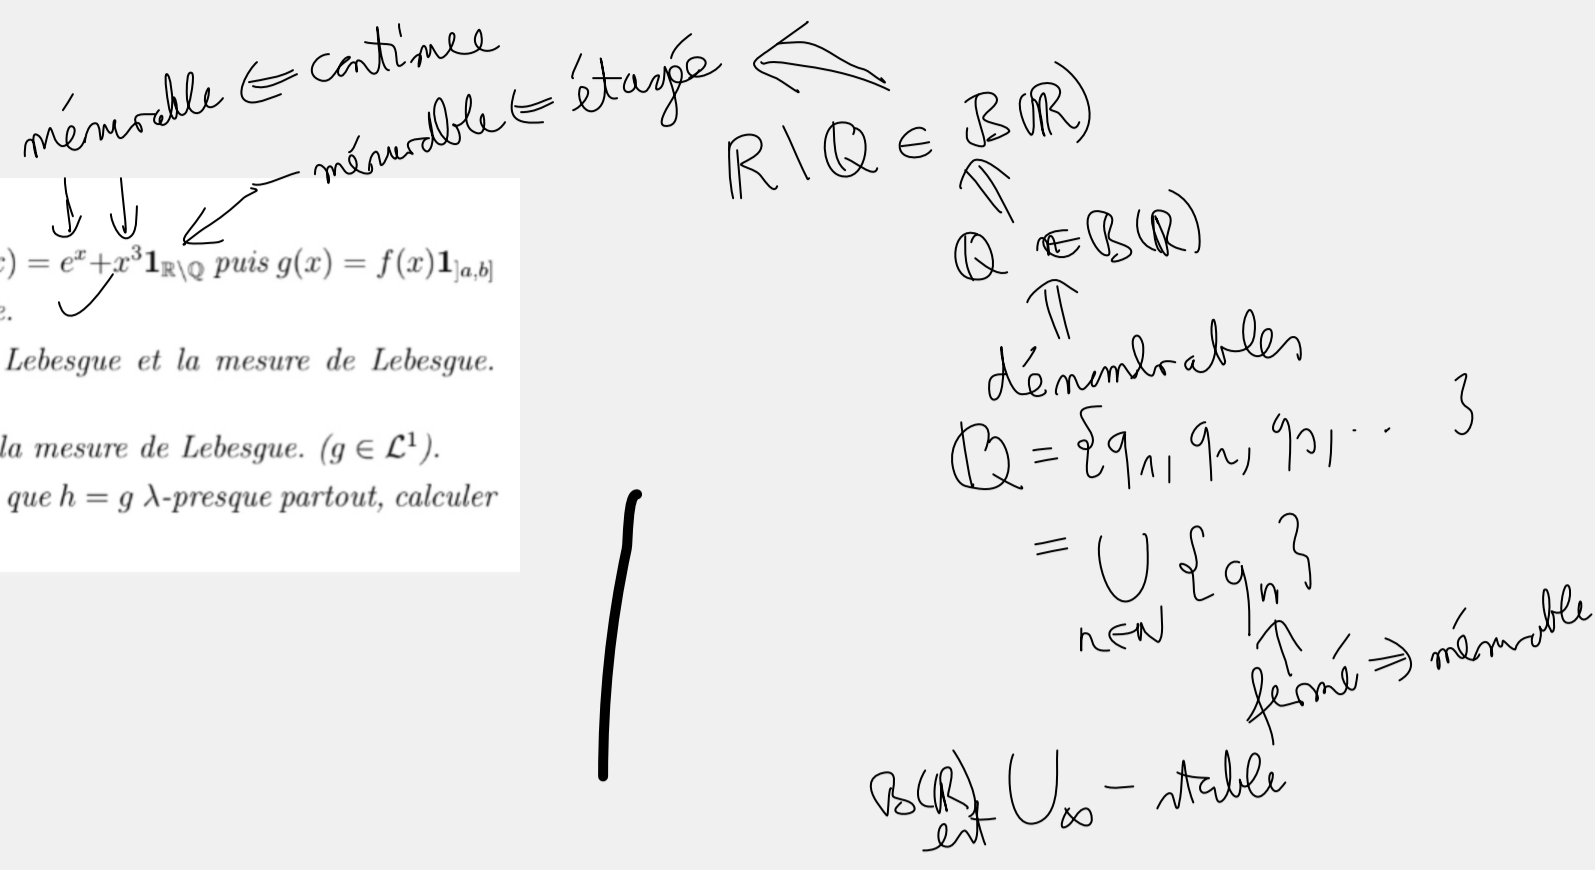 mésurable ⇐ continue
mésurable ⇐ étagée ⇐
) = eˣ+x³1_{ℝ\ℚ} puis g(x) = f(x)1_{]a,b]}
e.
Lebesgue et la mesure de Lebesgue.
la mesure de Lebesgue. (g ∈ ℒ¹).
que h = g λ-presque partout, calculer
ℝ\ℚ ∈ B(ℝ)
⇑
ℚ ∈ B(ℝ)
⇑
dénombrables
ℚ = {q₁, q₂, q₃, ... }
= ⋃_{n∈ℕ} {qₙ}
↑
fermé ⇒ mésurable
B(ℝ) est ⋃_∞ - stable